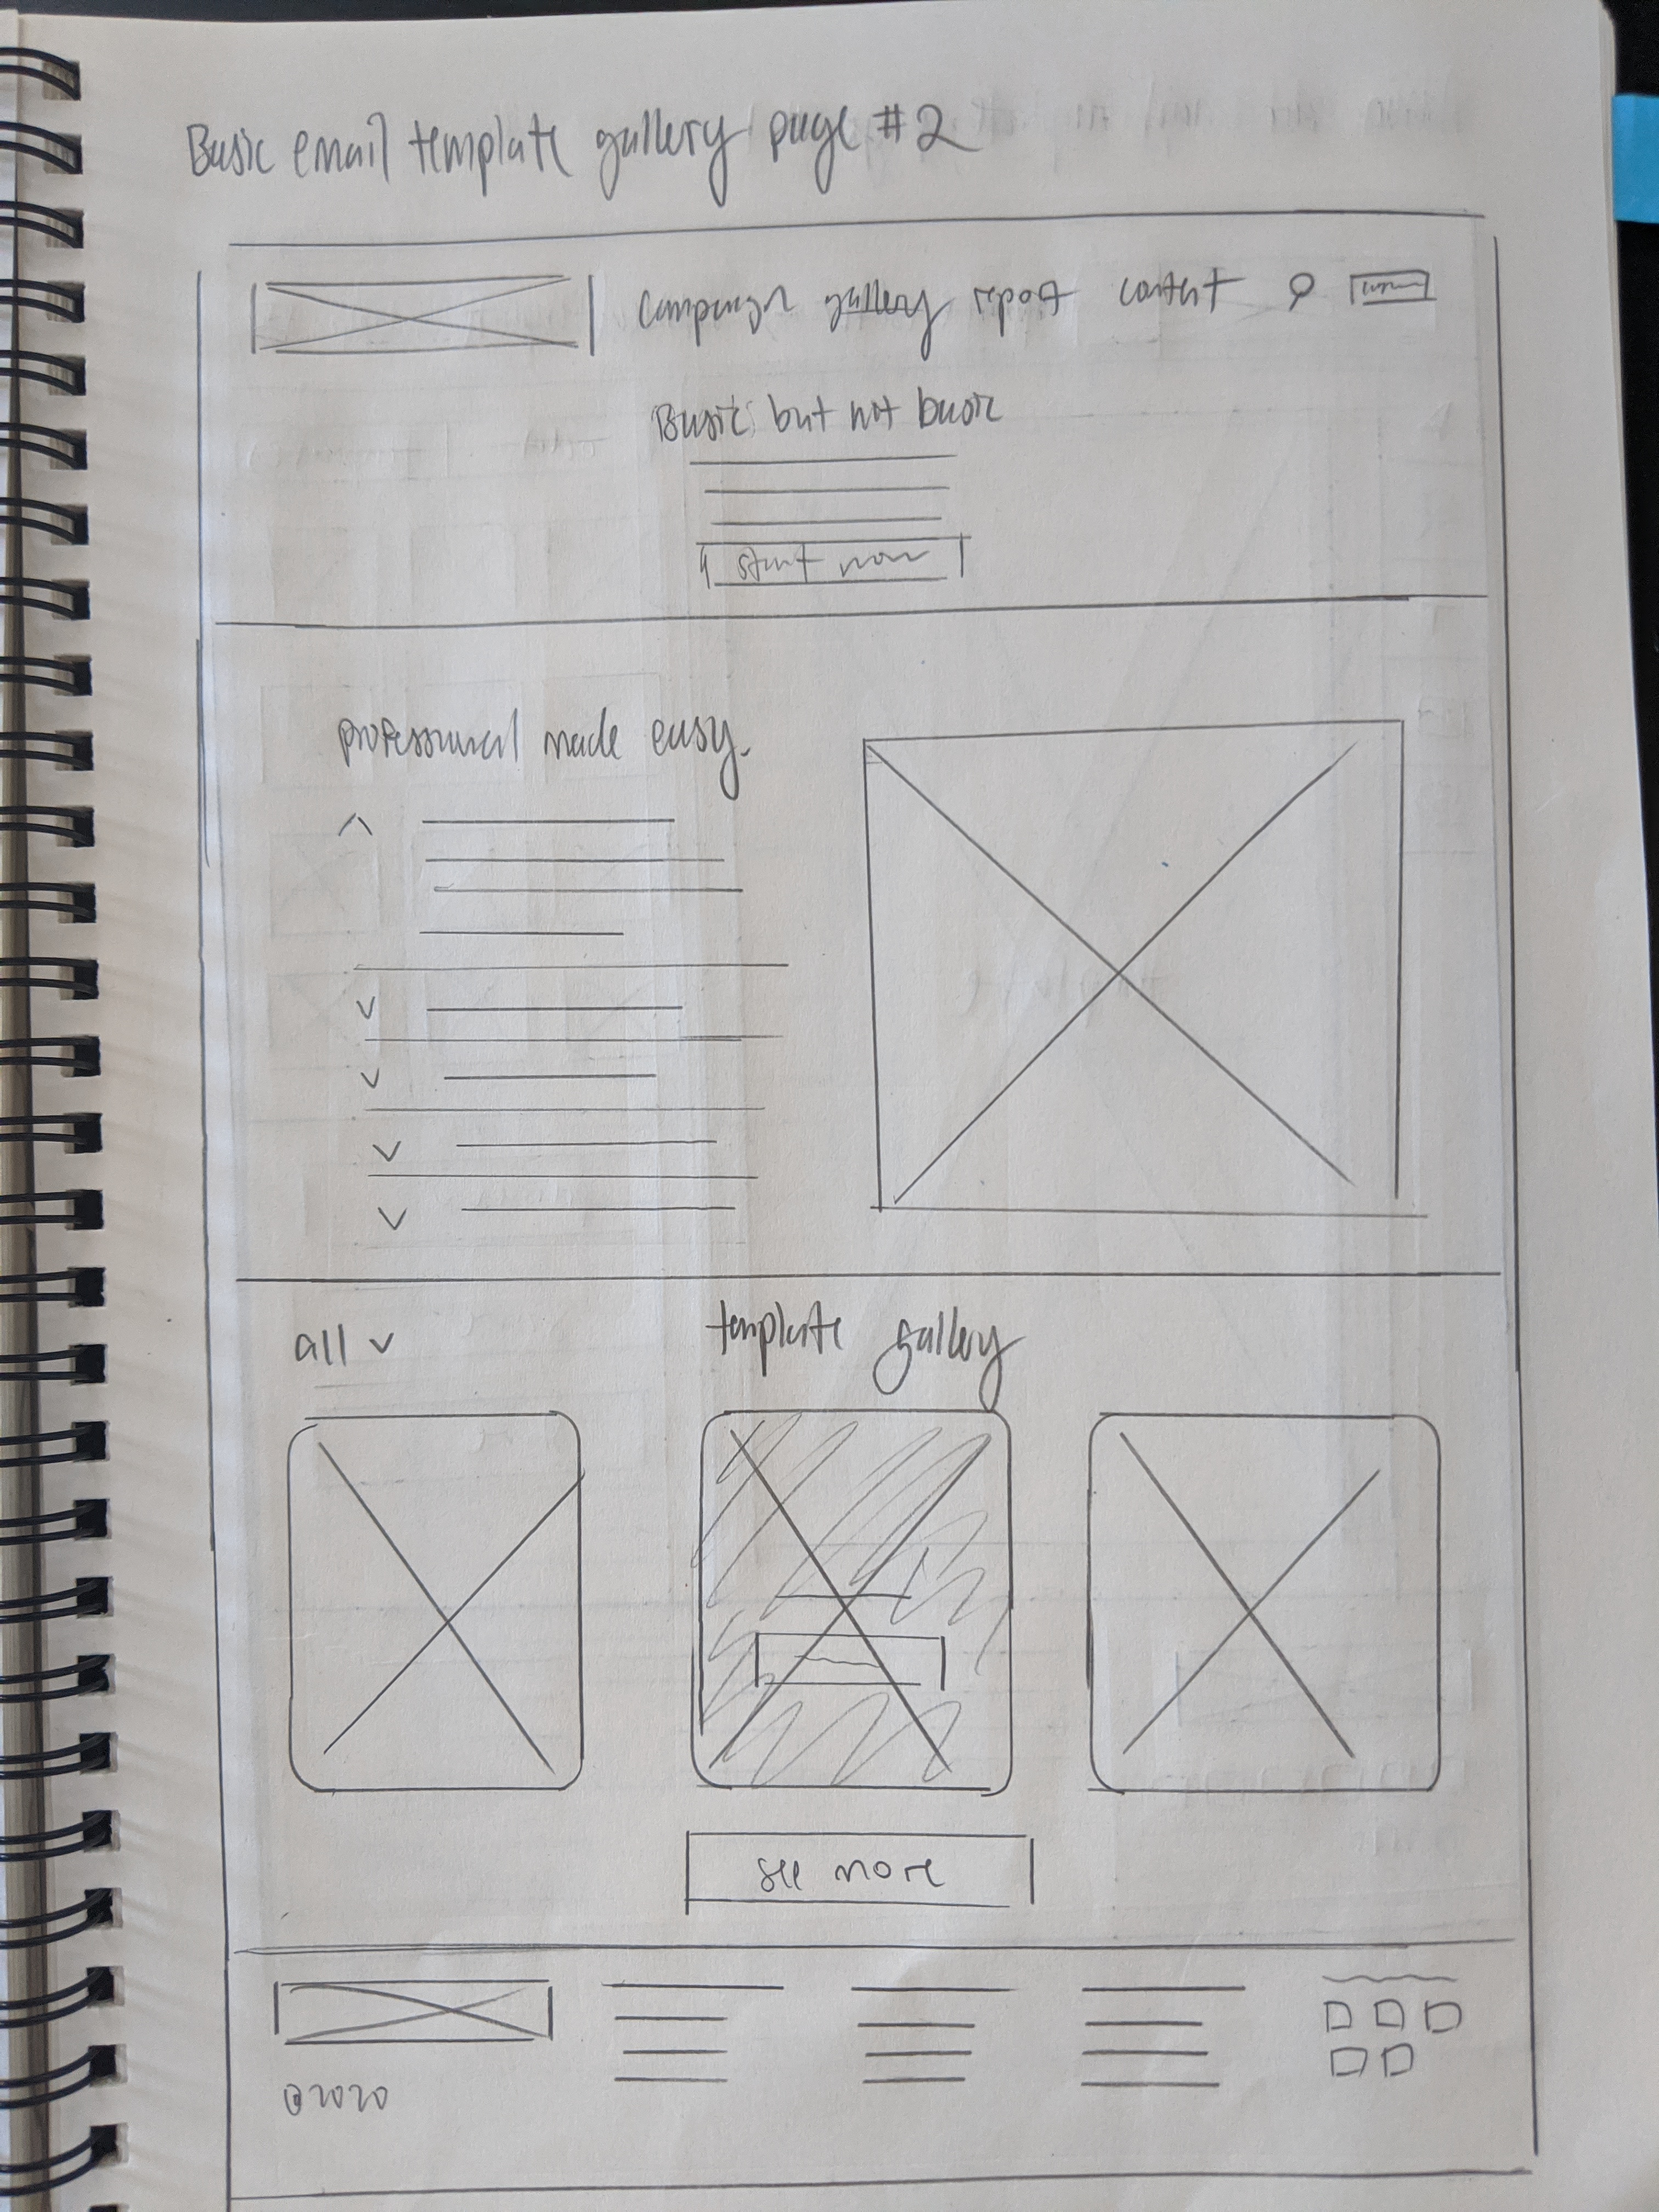 Basic email template gallery page #2
Campaign gallery report content
Basic but not basic
start now
professional made easy.
all
template gallery
see more
©2020